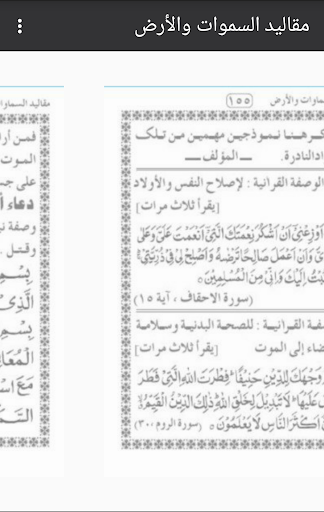 مقاليد السموات والأرض
ـماوات والأرض
(١٥٥)
كرهنا نموذجين مهمين من تلك
ادالنادرة. ــ المؤلف ــ
الوصفة القرانية : لإصلاح النفس والأولاد
[يقرأ ثلاث مرات]
اَوْزِعْنِيْ اَنْ اَشْكُرَ نِعْمَتَكَ الَّتِيْ اَنْعَمْتَ عَلَيَّ وَعَلٰى
وَاَنْ اَعْمَلَ صَالِحًا تَرْضٰهُ وَاَصْلِحْ لِيْ فِيْ ذُرِّيَّتِيْ
تُبْتُ اِلَيْكَ وَاِنِّيْ مِنَ الْمُسْلِمِيْنَ
(سورة الاحقاف ، آية ١٥)
ـفة القرانية : للصحة البدنية وسلامة
ـضاء إلى الموت [يقرأ ثلاث مرات]
وَجْهَكَ لِلدِّيْنِ حَنِيْفًا فِطْرَتَ اللهِ الَّتِيْ فَطَرَ
عَلَيْهَا لَا تَبْدِيْلَ لِخَلْقِ اللهِ ذٰلِكَ الدِّيْنُ الْقَيِّمُ
اَكْثَرَ النَّاسِ لَا يَعْلَمُوْنَ (سورة الروم ٣٠)
مقاليد السماوا
فمن أرا
الموت
على جس
دعاء أ
وصفة نبـ
وقتل
بِسْمِ
الَّذِيْ
بِسْمِ
الْمُعَا
مَعَ اسْـ
السَّـ